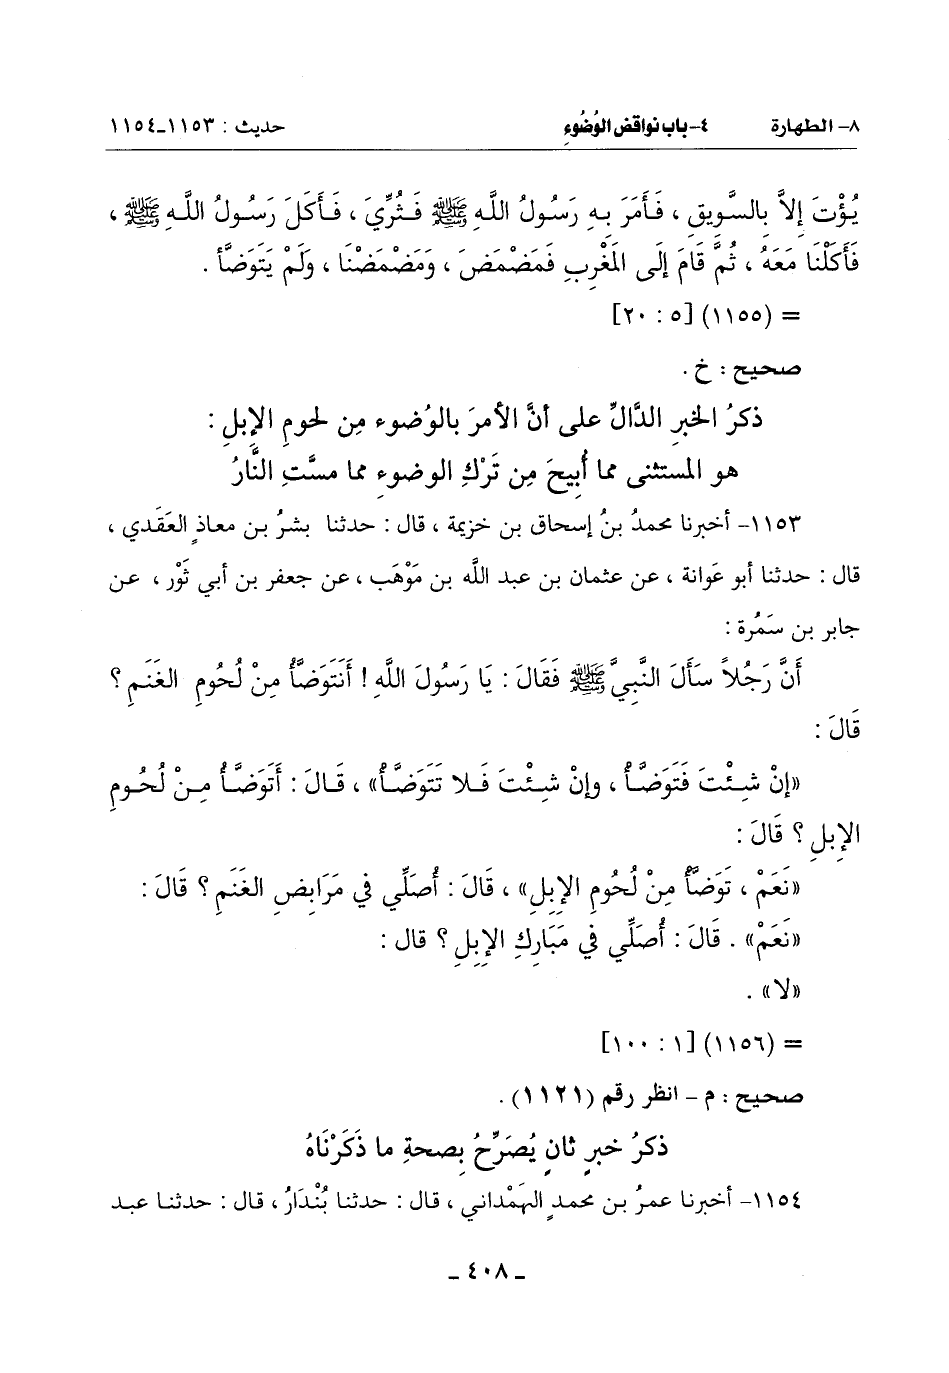 ٨- الطهارة ٤- باب نواقض الوُضُوءِ حديث : ١١٥٣-١١٥٤
يُؤْتَ إلاَّ بالسَّويقِ ، فَأَمَرَ بِهِ رَسُولُ اللَّهِ ﷺ فَثُرِّيَ ، فَأَكَلَ رَسُولُ اللَّهِ ﷺ ،
فَأَكَلْنَا مَعَهُ ، ثُمَّ قَامَ إلَى المَغْرِبِ فَمَضْمَضَ ، وَمَضْمَضْنَا ، ولَمْ يَتَوَضَّأْ .
= (١١٥٥) [٥ : ٢٠]
صحيح : خ .
ذكرُ الخبرِ الدَّالِّ على أنَّ الأمرَ بالوُضوء مِن لحومِ الإبلِ :
هو المستثنى مما أُبيحَ مِن تَرْكِ الوضوءِ مما مسَّتِ النَّارُ
١١٥٣- أخبرنا محمدُ بنُ إسحاق بن خزيمة ، قال : حدثنا بشرُ بن معاذٍ العَقَدي ،
قال : حدثنا أبو عَوانة ، عن عثمان بن عبد اللَّه بن مَوْهَب ، عن جعفر بن أبي ثَوْر ، عن
جابر بن سَمُرة :
أَنَّ رَجُلاً سَأَلَ النَّبِيَّ ﷺ فَقَالَ : يَا رَسُولَ اللَّهِ ! أَنَتَوَضَّأُ مِنْ لُحُومِ الغَنَمِ ؟
قَالَ :
«إنْ شِئْتَ فَتَوَضَّأْ ، وإنْ شِئْتَ فَلا تَتَوَضَّأْ» ، قَالَ : أَتَوَضَّأُ مِنْ لُحُومِ
الإبلِ ؟ قَالَ :
«نَعَمْ ، تَوَضَّأْ مِنْ لُحُومِ الإبِلِ» ، قَالَ : أُصَلِّي فِي مَرَابِضِ الغَنَمِ ؟ قَالَ :
«نَعَمْ» . قَالَ : أُصَلِّي فِي مَبَارِكِ الإبِلِ ؟ قال :
«لا» .
= (١١٥٦) [١ : ١٠٠]
صحيح : م - انظر رقم (١١٢١) .
ذكرُ خبرٍ ثانٍ يُصَرِّحُ بِصحةِ ما ذَكَرْنَاهُ
١١٥٤- أخبرنا عمرُ بن محمدٍ الهَمْداني ، قال : حدثنا بُنْدَارُ ، قال : حدثنا عبد
ـ ٤٠٨ ـ